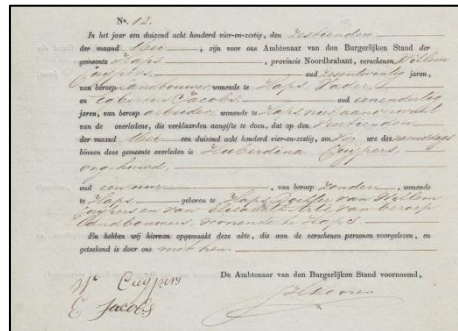 No. 12.
In het jaar een duizend acht honderd vier-en-zestig, den zestienden
der maand Mei, zijn voor ons Ambtenaar van den Burgerlijken Stand der
gemeente Haps, provincie Noordbrabant, verschenen Willem
Cuijpers oud jaren,
van beroep landbouwer, wonende te Haps, Vader
en Jacobs oud eenendertig
jaren, van beroep arbeider, wonende te Haps niet aanverwant
van de overledene, die verklaarden aangifte te doen, dat op den
der maand Mei een duizend acht honderd vier-en-zestig, om ure des namiddags
binnen deze gemeente overleden is Huberdina Cuijpers
ongehuwd,
oud een uur, van beroep zonder, wonende
te Haps geboren te Haps Dochter van Willem
Cuijpers en van van beroep
landbouwers, wonende te Haps.
En hebben wij hiervan opgemaakt deze akte, die aan de verschenen personen voorgelezen, en
geteekend is door ons met hen.
De Ambtenaar van den Burgerlijken Stand voornoemd,
W Cuijpers
C Jacobs